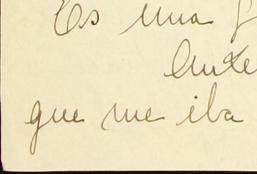 Es una
Ante
que me iba